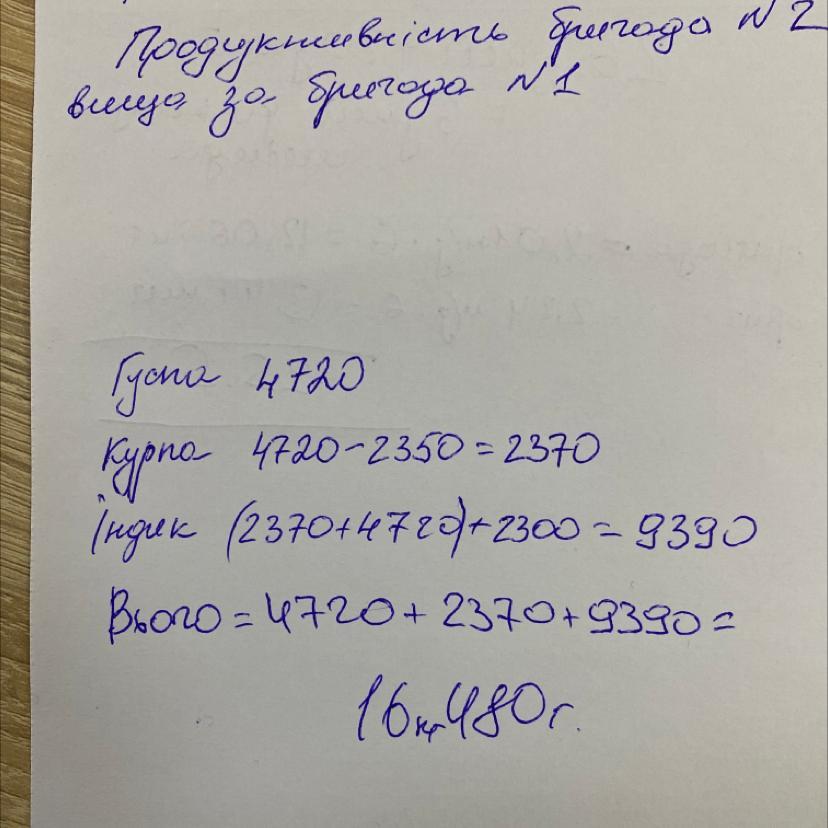 Продуктивність бригада №2
вища за бригада №1
Гуспа 4720
Курпа 4720-2350=2370
Індик (2370+4720)+2300=9390
Вього=4720+2370+9390=
16кг480г.